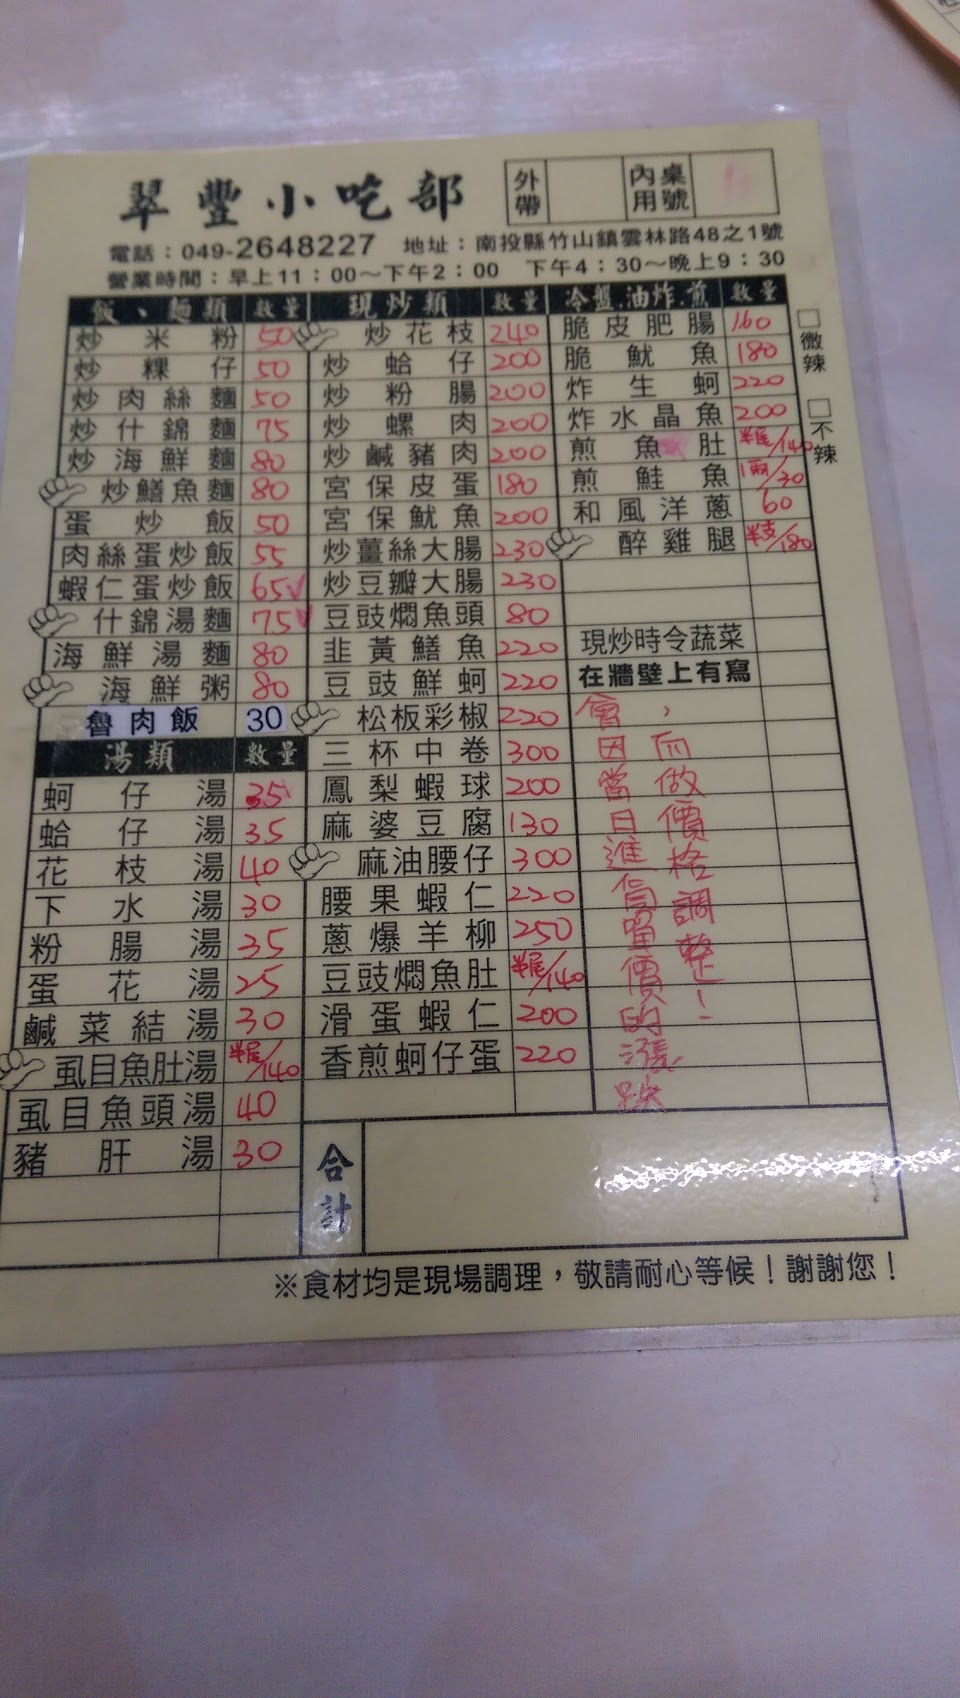 翠豐小吃部
外帶
內用桌號
電話：049-2648227 地址：南投縣竹山鎮雲林路48之1號
營業時間：早上11：00～下午2：00 下午4：30～晚上9：30
飯、麵類 數量
炒米粉 50
炒粿仔 50
炒肉絲麵 50
炒什錦麵 75
炒海鮮麵 80
炒鱔魚麵 80
蛋炒飯 50
肉絲蛋炒飯 55
蝦仁蛋炒飯 65
什錦湯麵 75
海鮮湯麵 80
海鮮粥 80
魯肉飯 30
湯類 數量
蚵仔湯 35
蛤仔湯 35
花枝湯 40
下水湯 30
粉腸湯 35
蛋花湯 25
鹹菜結湯 30
虱目魚肚湯 半尾/140
虱目魚頭湯 40
豬肝湯 30
現炒類 數量
炒花枝 240
炒蛤仔 200
炒粉腸 200
炒螺肉 200
炒鹹豬肉 200
宮保皮蛋 180
宮保魷魚 200
炒薑絲大腸 230
炒豆瓣大腸 230
豆豉燜魚頭 80
韭黃鱔魚 220
豆豉鮮蚵 220
松板彩椒 220
三杯中卷 300
鳳梨蝦球 200
麻婆豆腐 130
麻油腰仔 300
腰果蝦仁 220
蔥爆羊柳 250
豆豉燜魚肚 半尾/140
滑蛋蝦仁 200
香煎蚵仔蛋 220
冷盤.油炸.煎 數量
脆皮肥腸 160
脆魷魚 180
炸生蚵 220
炸水晶魚 200
煎魚肚 半尾/140
煎鮭魚 1兩/30
和風洋蔥 60
醉雞腿 半支/180
現炒時令蔬菜
在牆壁上有寫
會因當日進貨單價的漲跌
，而做價格調整！
□微辣
□不辣
合計
※食材均是現場調理，敬請耐心等候！謝謝您！